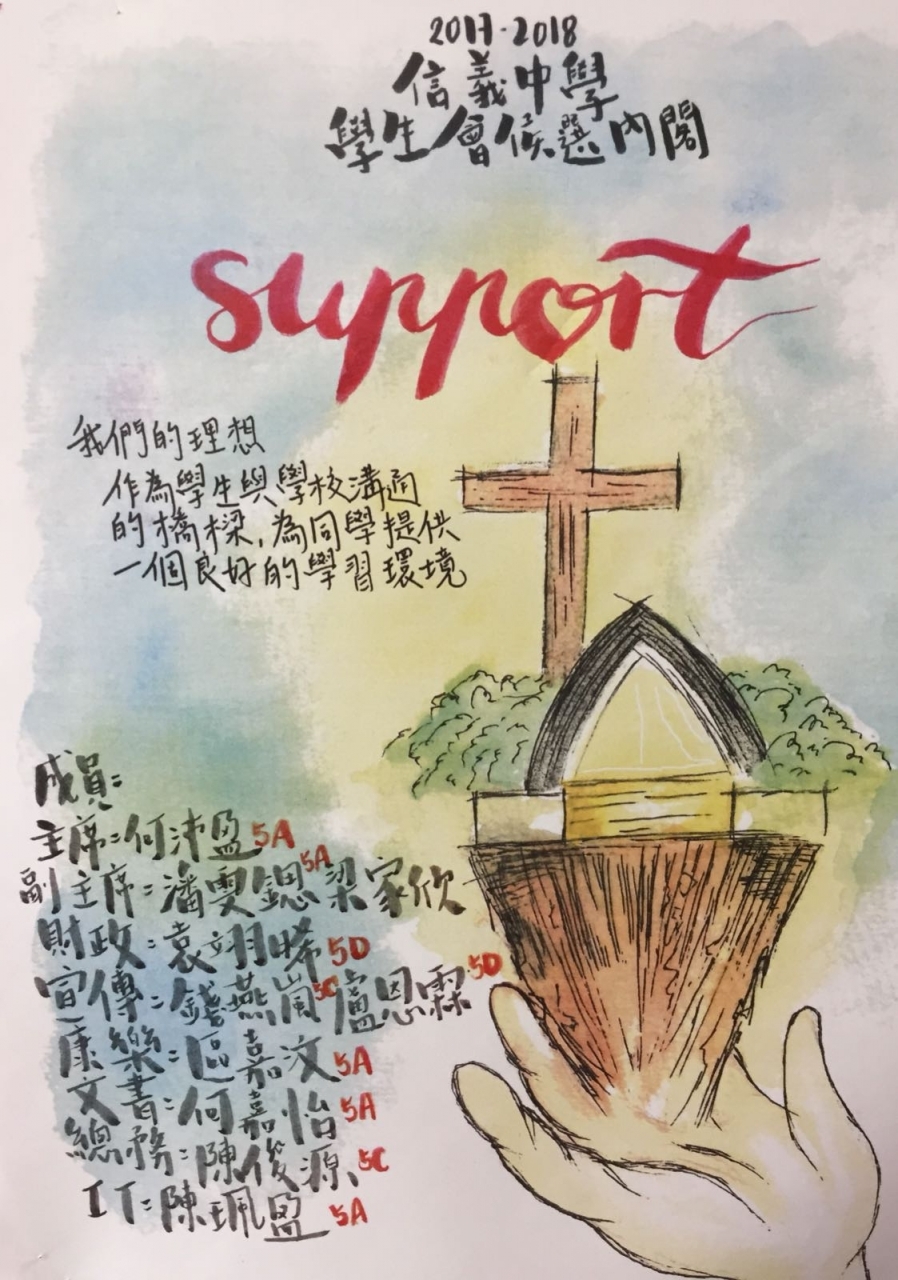 2017-2018
信義中學
學生會候選內閣
support
我們的理想
作為學生與學校溝通
的橋樑,為同學提供
一個良好的學習環境
成員:
主席:何沛盈 5A
副主席:潘雯鍶 5A 梁家欣
財政:袁翊晞 5D
宣傳:錢燕嵐 5C 盧恩霖 5D
康樂:區嘉汶 5A
文書:何嘉怡 5A
總務:陳俊源 5C
IT:陳珮盈 5A